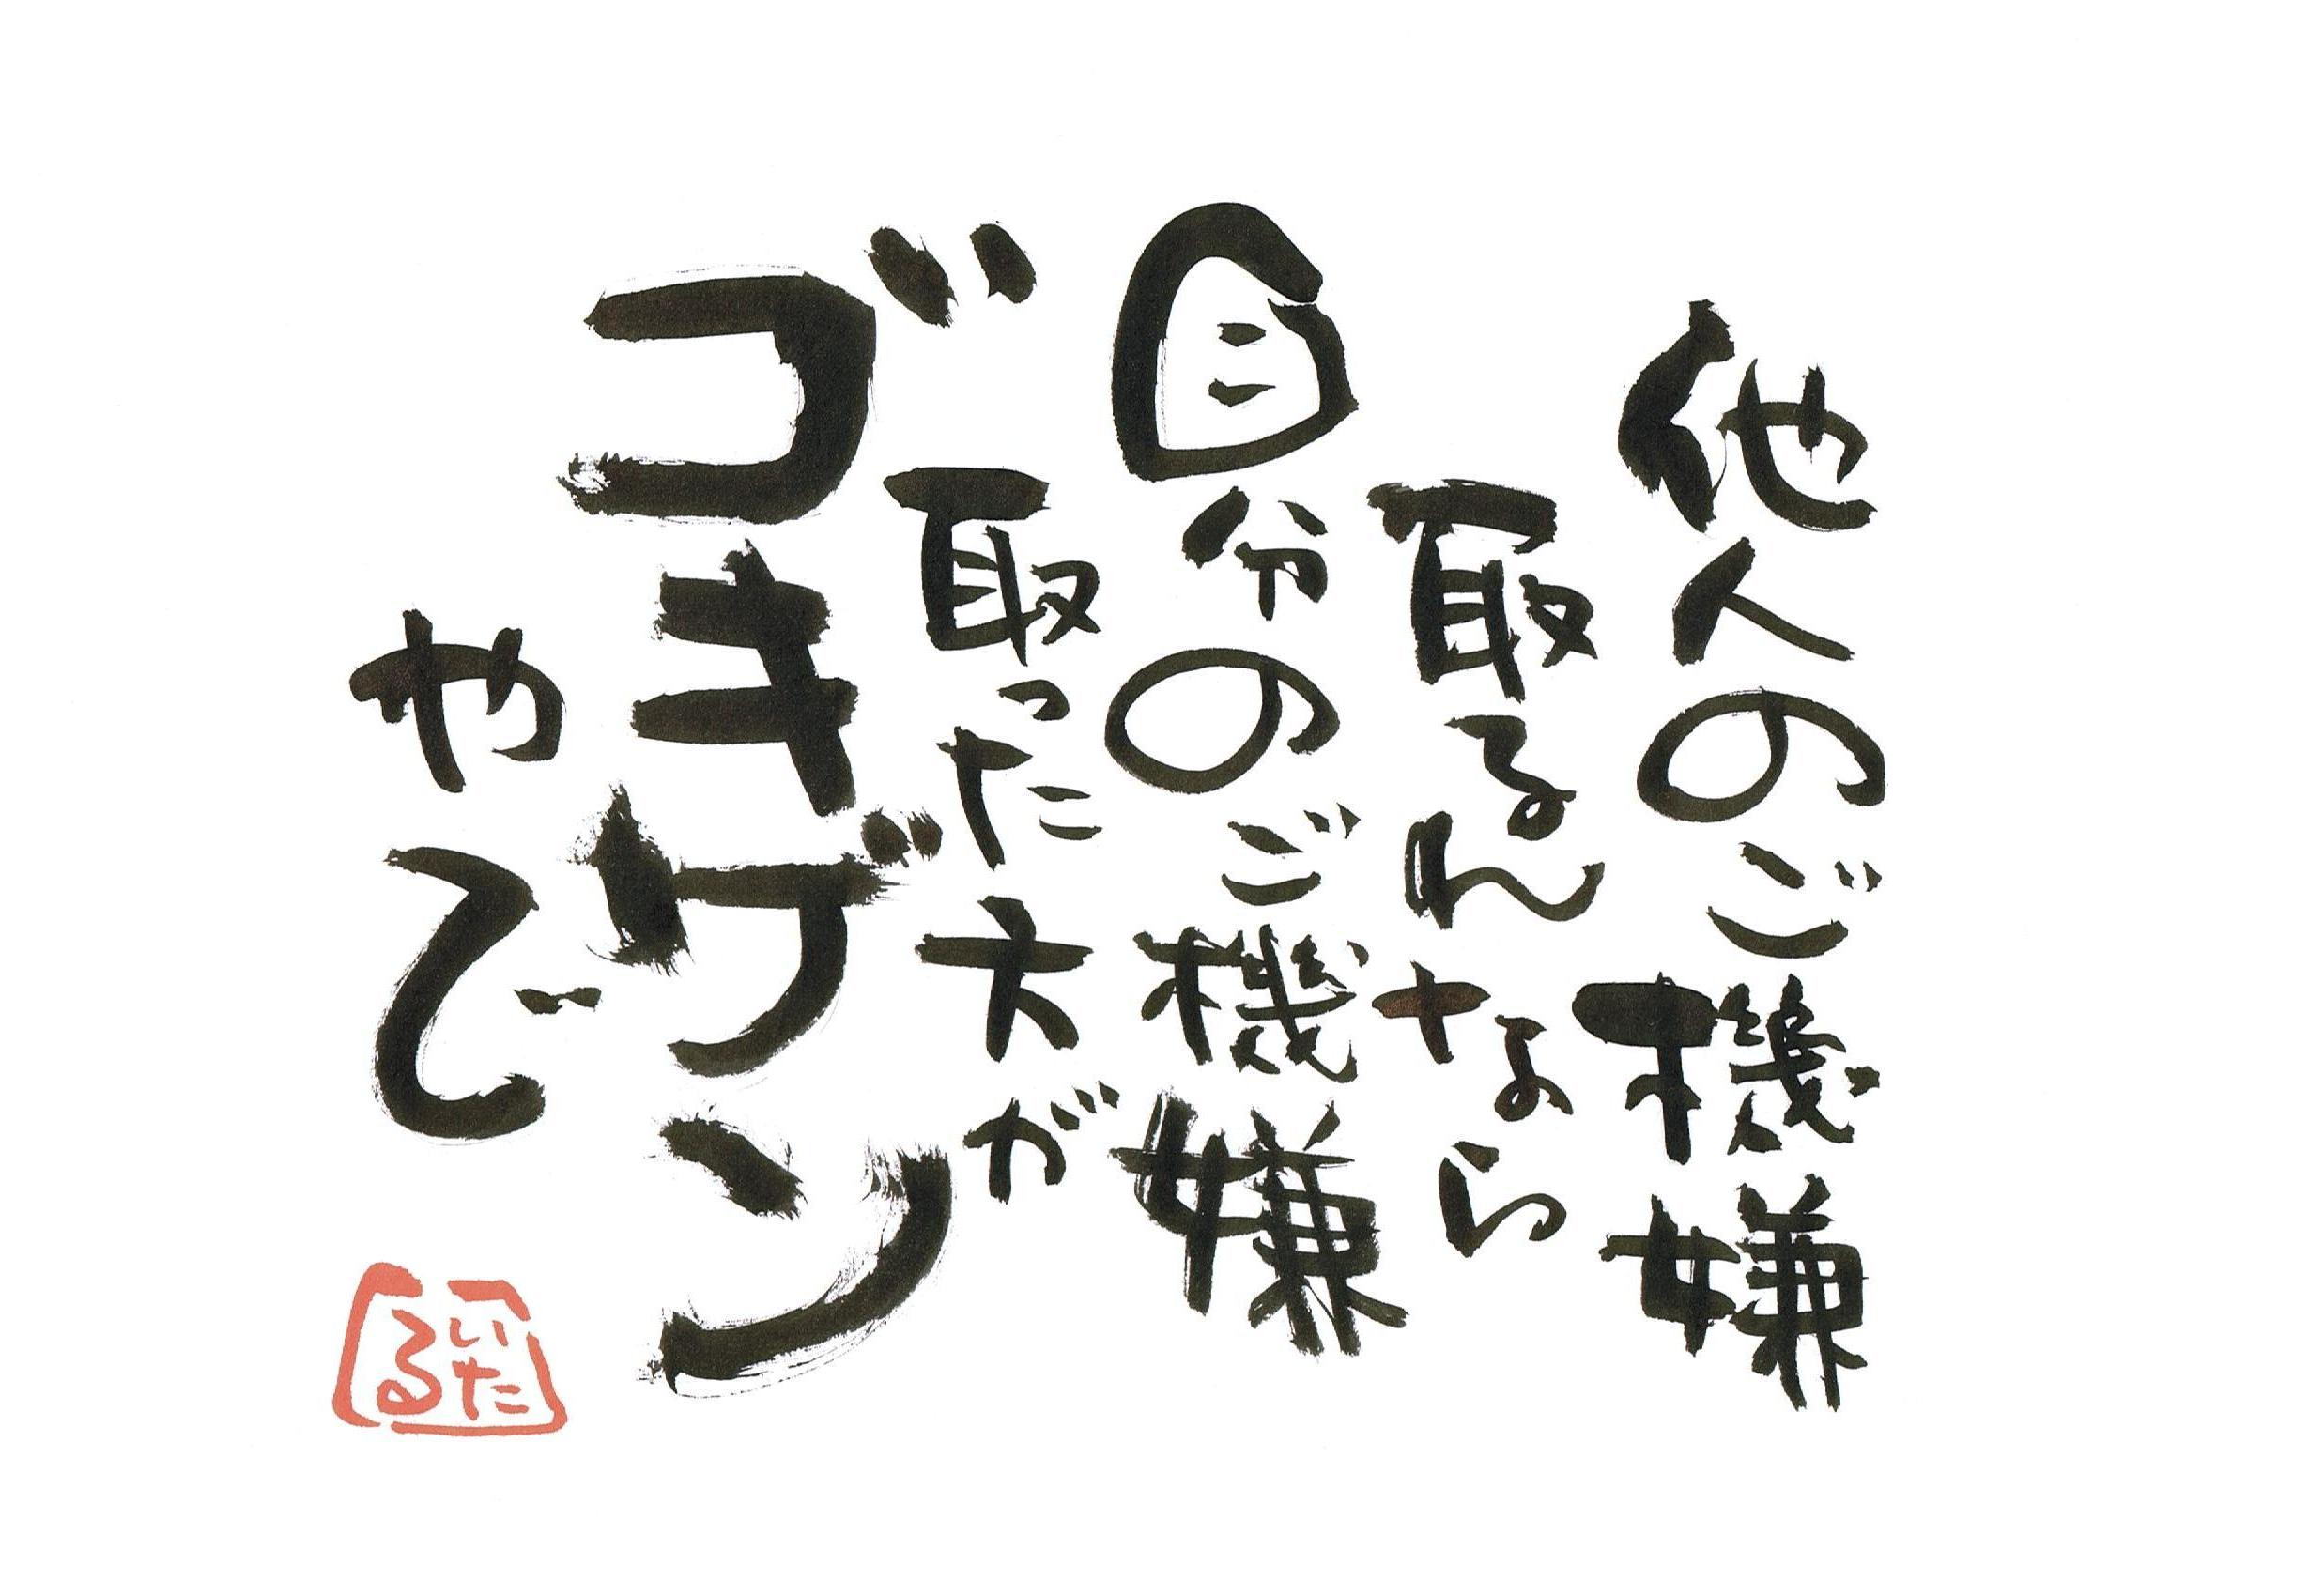 他人のご機嫌
取るんなら
自分のご機嫌
取った方が
ゴキゲン
やで
いた
る